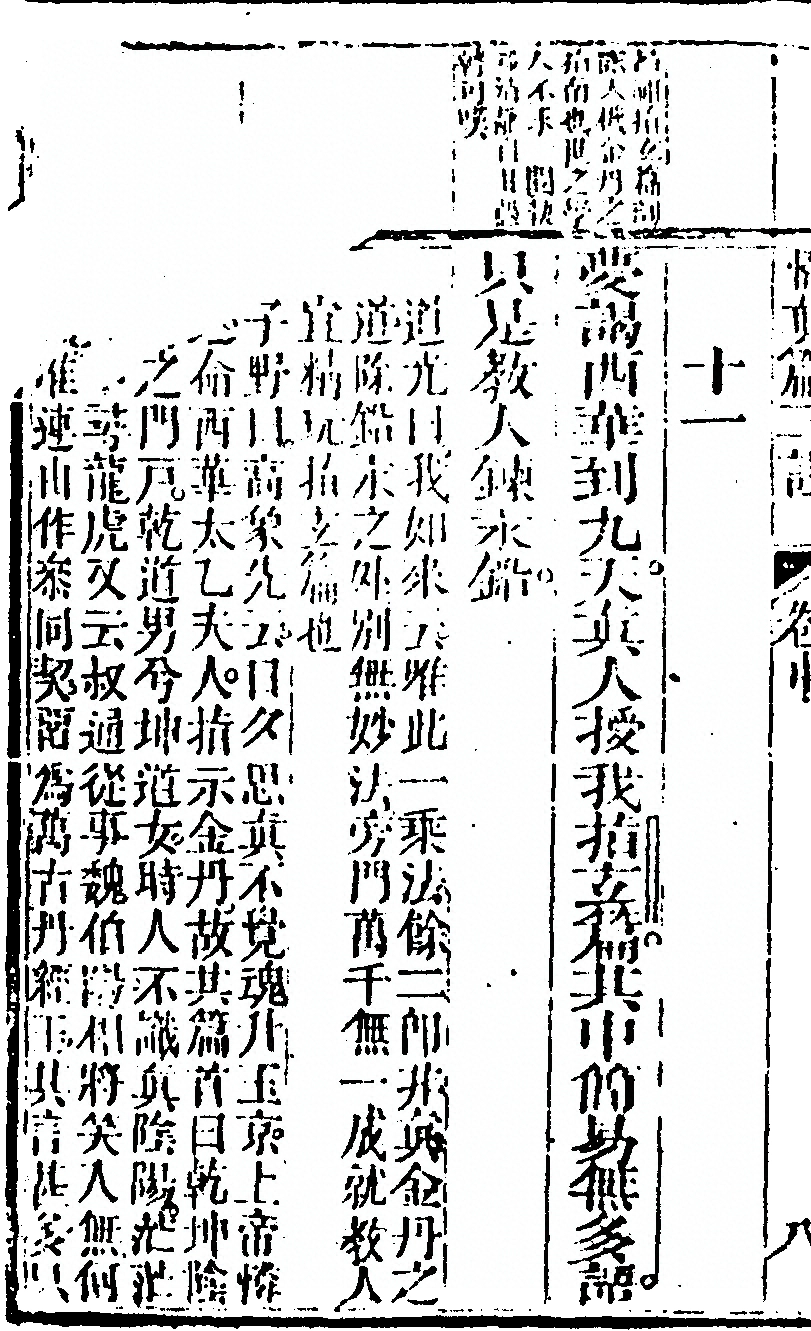 悟真篇三註 卷中 八
指南也世之學
可笑
十一
夢謁西華到九天真人授我指玄篇其中的易無多語
只是教人鍊汞鉛
道光曰我如來云唯此一乘法餘二卽非真金丹之
道除鉛汞之外別無妙法旁門萬千無一成就教人
宜精玩指玄篇也
子野曰高象先云曰久思真不覺魂升玉京上帝憐
之命西華太乙夫人指示金丹故其篇首曰乾坤陰
之門戶乾道男兮坤道女時人不識真陰陽茫茫
尋龍虎又云叔通從事魏伯陽相將笑入無何
准連山作參同契留為萬古丹經王其言甚多只